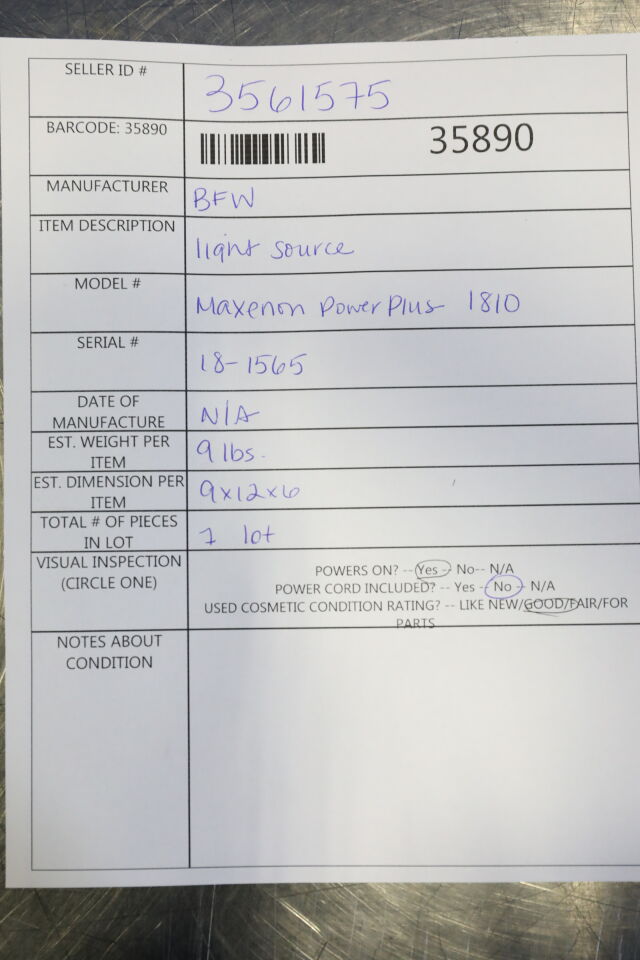 SELLER ID #
3561575
BARCODE: 35890
35890
MANUFACTURER
BFW
ITEM DESCRIPTION
light source
MODEL #
Maxenon PowerPlus 1810
SERIAL #
18-1565
DATE OF
MANUFACTURE
N/A
EST. WEIGHT PER
ITEM
9 lbs.
EST. DIMENSION PER
ITEM
9x12x6
TOTAL # OF PIECES
IN LOT
1 lot
VISUAL INSPECTION
(CIRCLE ONE)
POWERS ON? -- Yes -- No-- N/A
POWER CORD INCLUDED? -- Yes - No - N/A
USED COSMETIC CONDITION RATING? -- LIKE NEW/GOOD/FAIR/FOR
PARTS
NOTES ABOUT
CONDITION